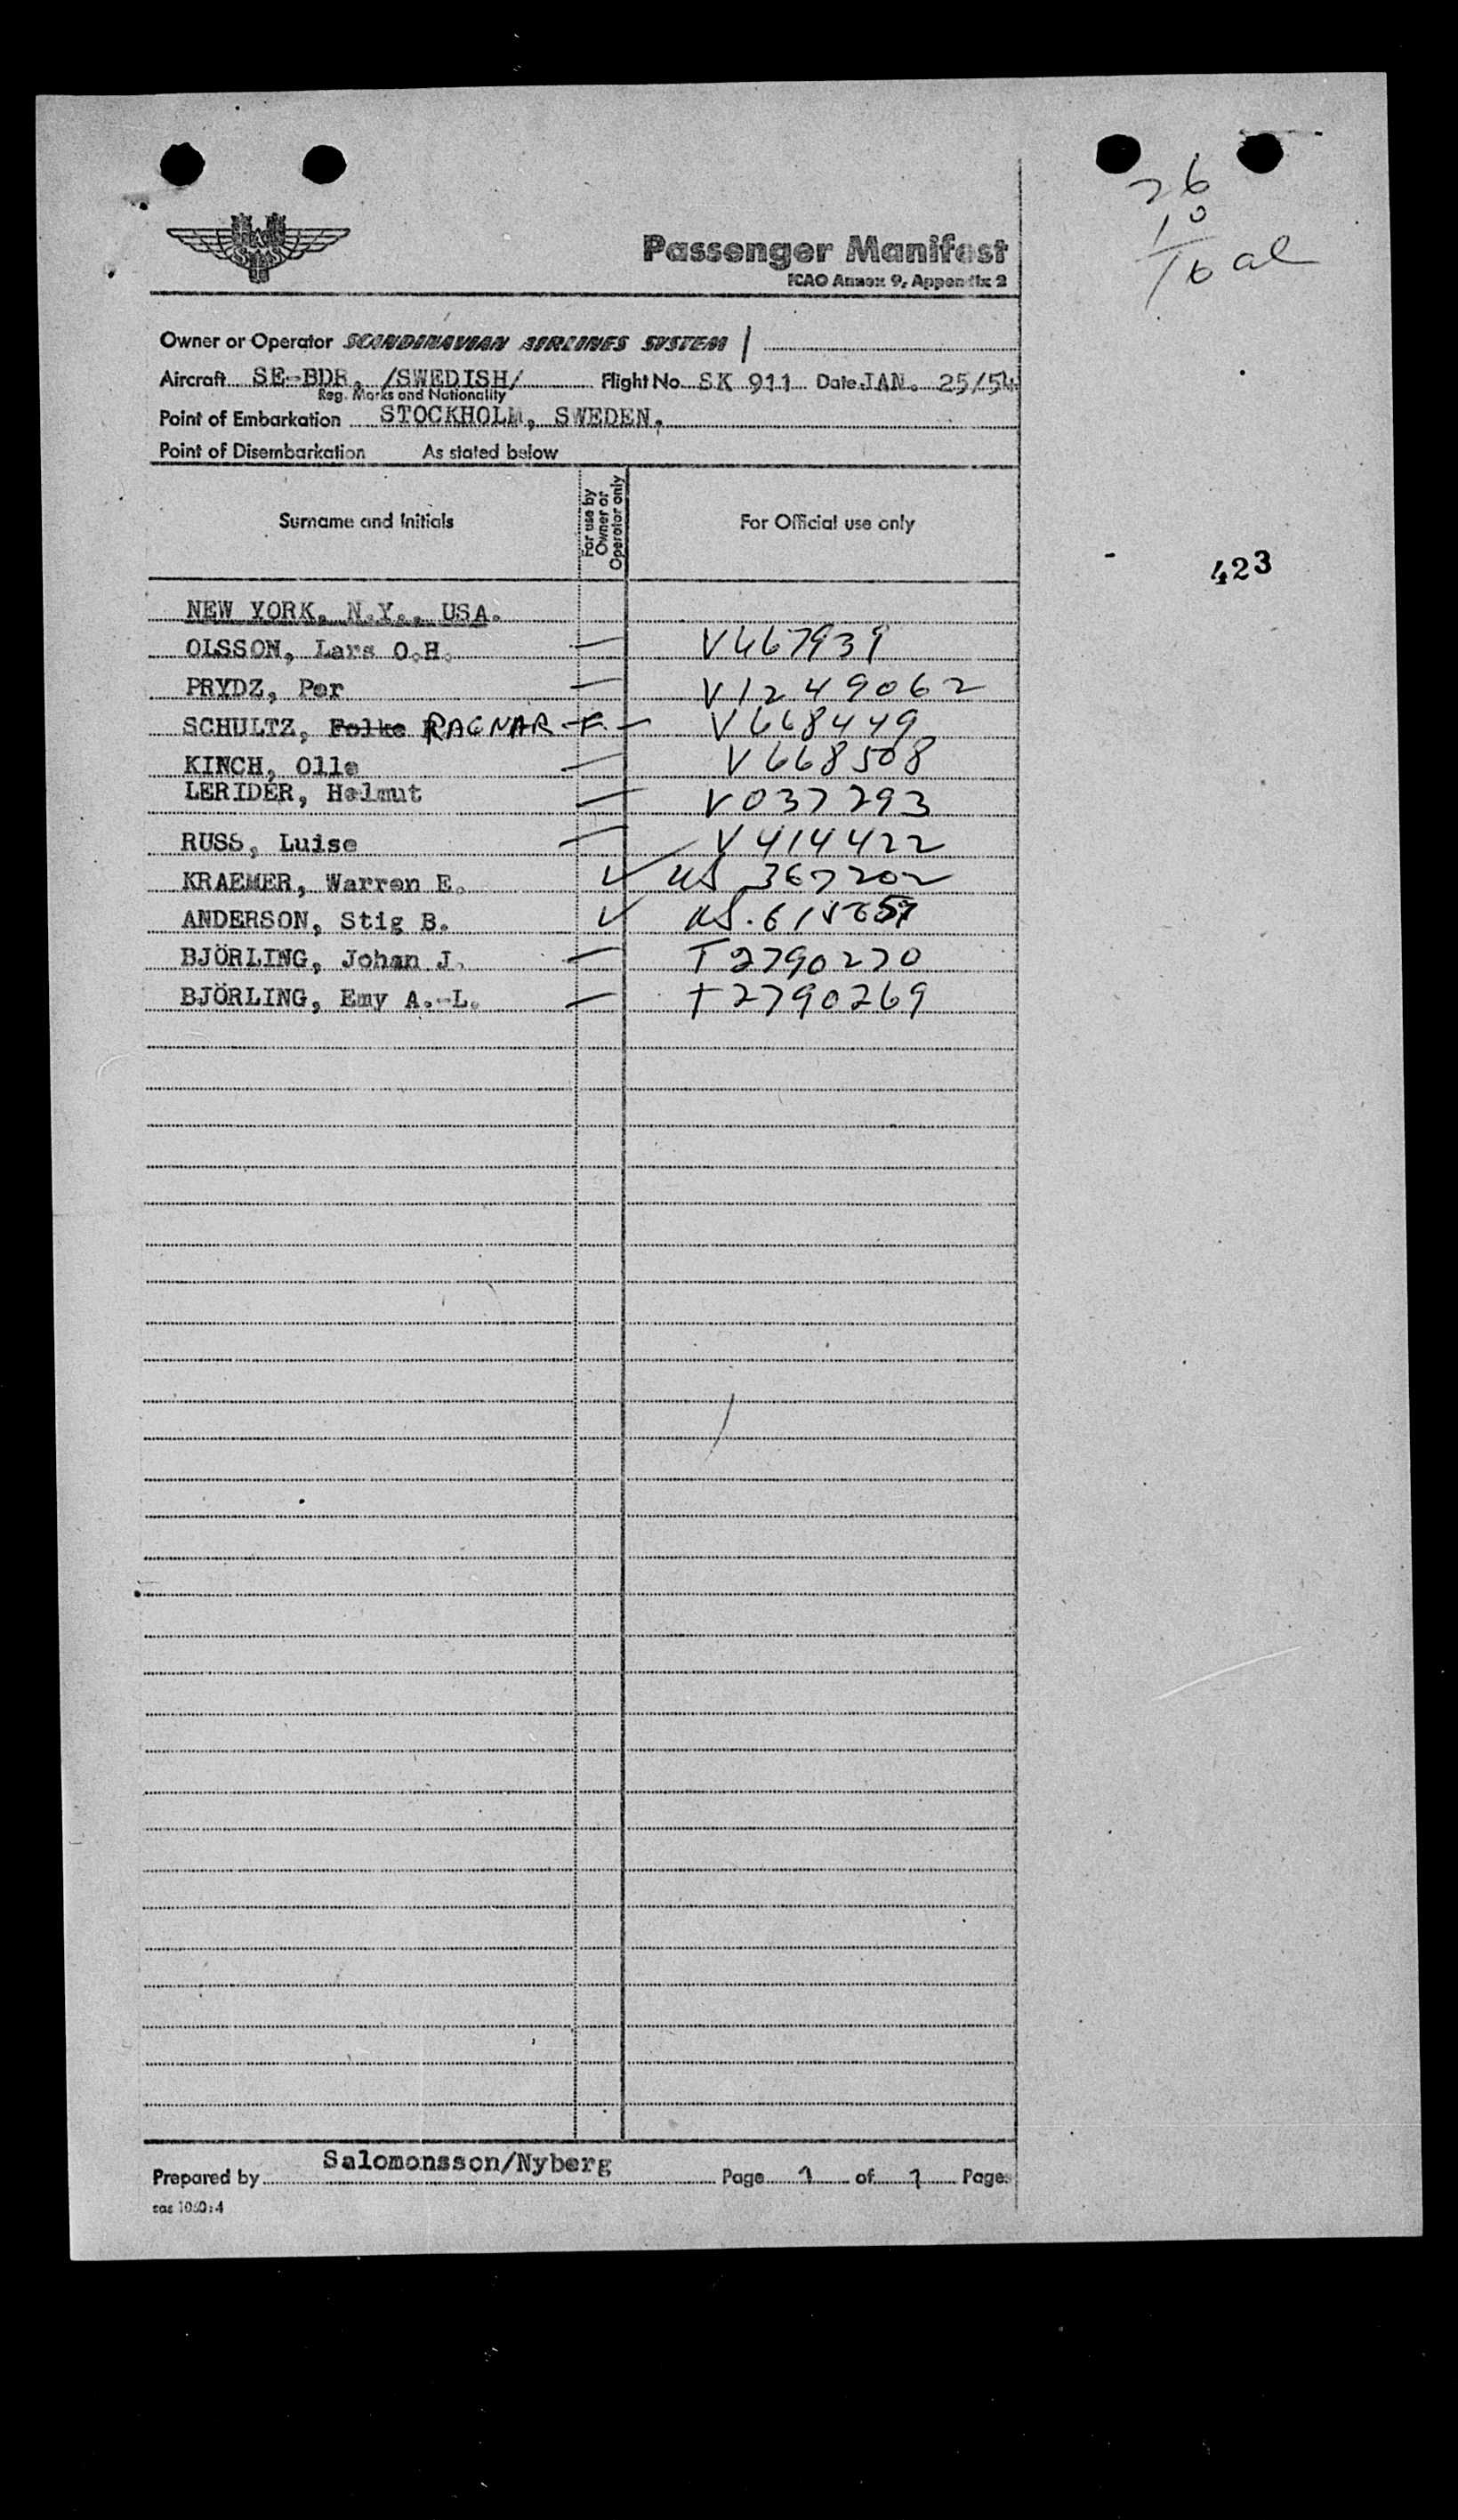 26
10
16 al
Passenger Manifest
ICAO Annex 9, Appendix 2
Owner or Operator SCANDINAVIAN AIRLINES SYSTEM
Aircraft SE-BDR, /SWEDISH/ Flight No. SK 911 Date JAN. 25/54
Reg. Marks and Nationality
Point of Embarkation STOCKHOLM, SWEDEN.
Point of Disembarkation As stated below
Surname and Initials
For use by Owner or Operator only
For Official use only
423
NEW YORK, N.Y., USA.
OLSSON, Lars O.H. — V467939
PRYDZ, Per — V1249062
SCHULTZ, Folke RAGNAR - F. — V668449
KINCH, Olle — V668508
LERIDER, Helmut — V037293
RUSS, Luise — V414422
KRAEMER, Warren E. ✓ US 367202
ANDERSON, Stig B. ✓ US.
BJÖRLING, Johan J. — T2790270
BJÖRLING, Emy A.-L. — T2790269
Prepared by Salomonsson/Nyberg Page 1 of 1 Pages
sas 1060:4